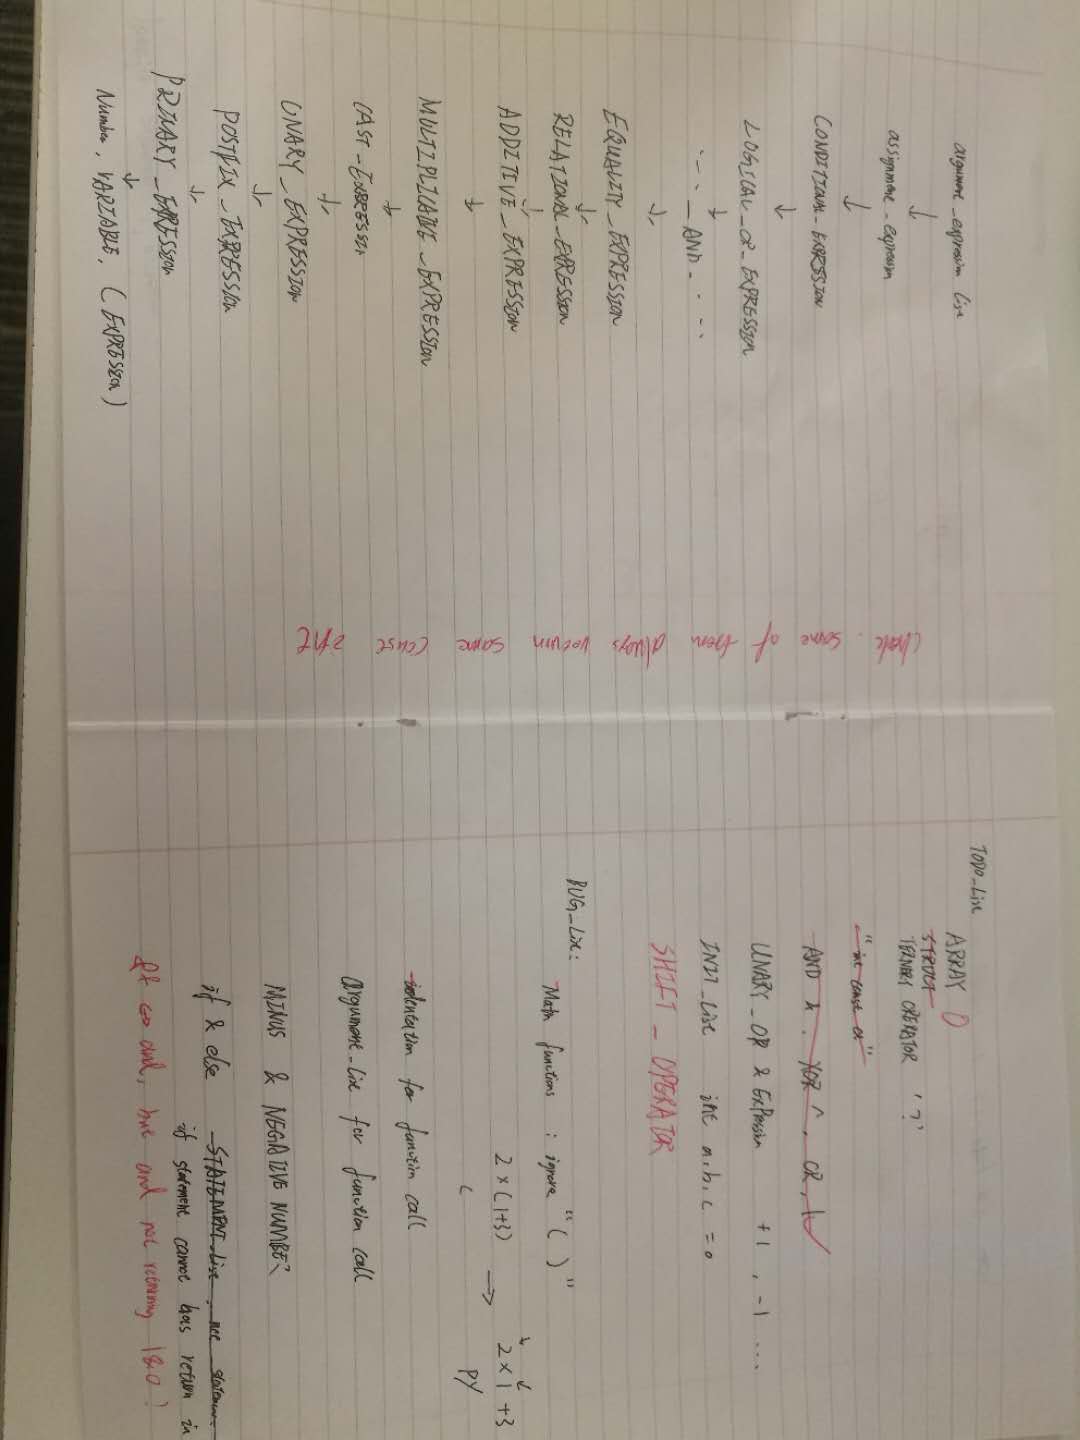 argument_expression list
↓
assignment_expression
↓
CONDITIONAL_EXPRESSION
↓
LOGICAL_OR_EXPRESSION
↓
..._AND_...
↓
EQUALITY_EXPRESSION
↓
RELATIONAL_EXPRESSION
↓
ADDITIVE_EXPRESSION
↓
MULTIPLICATIVE_EXPRESSION
↓
CAST_EXPRESSION
↓
UNARY_EXPRESSION
↓
POSTFIX_EXPRESSION
↓
PRIMARY_EXPRESSION
↓
Number, VARIABLE, (EXPRESSION)
some of them always return same
TODO_List
ARRAY
STRUCT
TERNARY OPERATOR '?'
AND &, XOR ^, OR, |
UNARY_OP & EXPRESSION +1, -1 ...
INIT_List int a,b,c =0
SHIFT_OPERATOR
BUG_List:
Math functions : ignore "( )"
2×(1+3) → 2×1+3
C PY
indentation for function call
argument_list for function call
MINUS & NEGATIVE NUMBER?
if & else STATEMENT_List, not statement
if statement cannot has return in
and not returning 1&0?